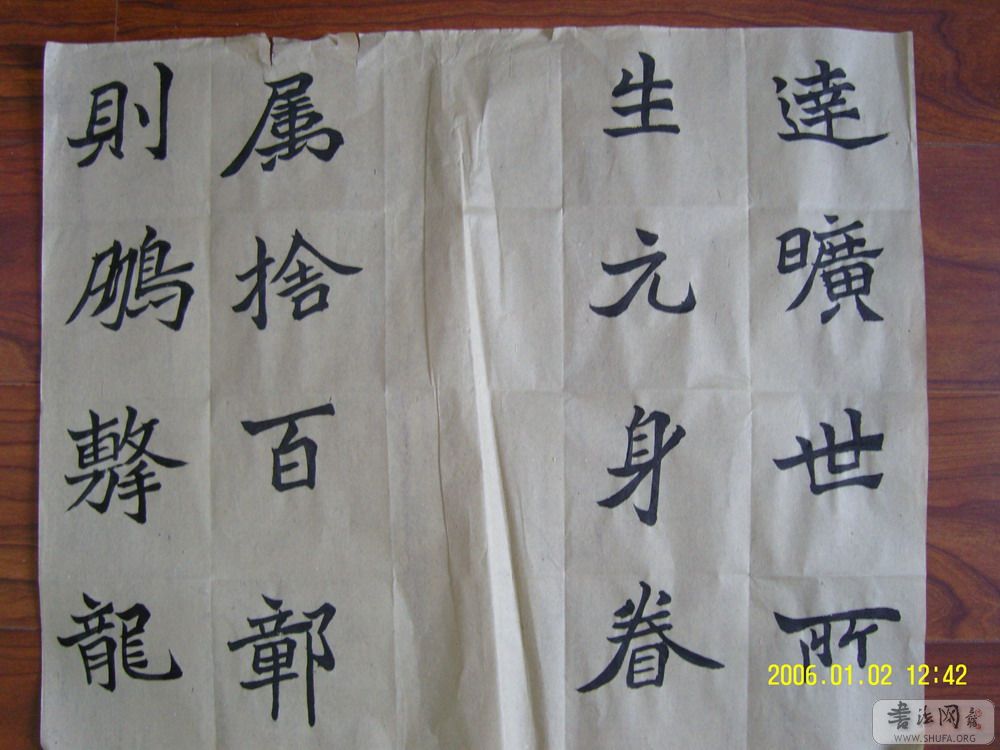 達曠世所
生元身眷
属捨百鄣
則鵰擊龍
2006.01.02 12:42
书法网
WWW.SHUFA.ORG